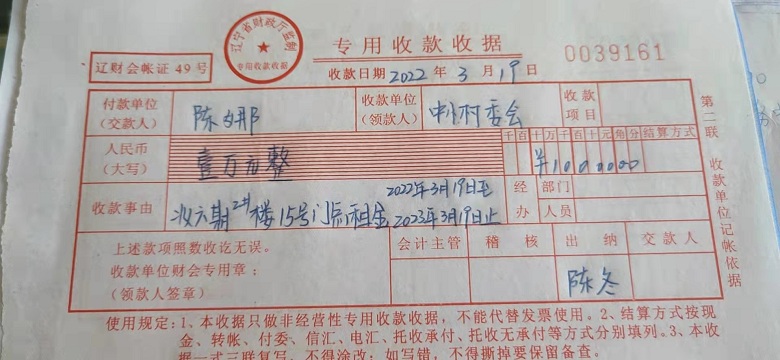 辽宁省财政厅监制
专用收款收据
辽财会帐证49号
专用收款收据
0039161
收款日期2022年3月19日
付款单位
(交款人)
陈明娜
收款单位
(领款人)
村委会
收款
项目
人民币
(大写)
壹万元整
千百十万千百十元角分
结算方式
¥1000000
收款事由
收六期2#楼15号门点租金
2022年3月19日至
2023年3月19日止
经办
部门
人员
上述款项照数收讫无误。
收款单位财会专用章:
(领款人签章)
会计主管
稽核
出纳
交款人
陈冬
第二联 收款单位记帐依据
使用规定:1、本收据只做非经营性专用收款收据,不能代替发票使用。2、结算方式按现
金、转帐、付委、信汇、电汇、托收承付、托收无承付等方式分别填列。3、本收
据一式三联复写,不得涂改;如写错,不得撕掉要保留备查。